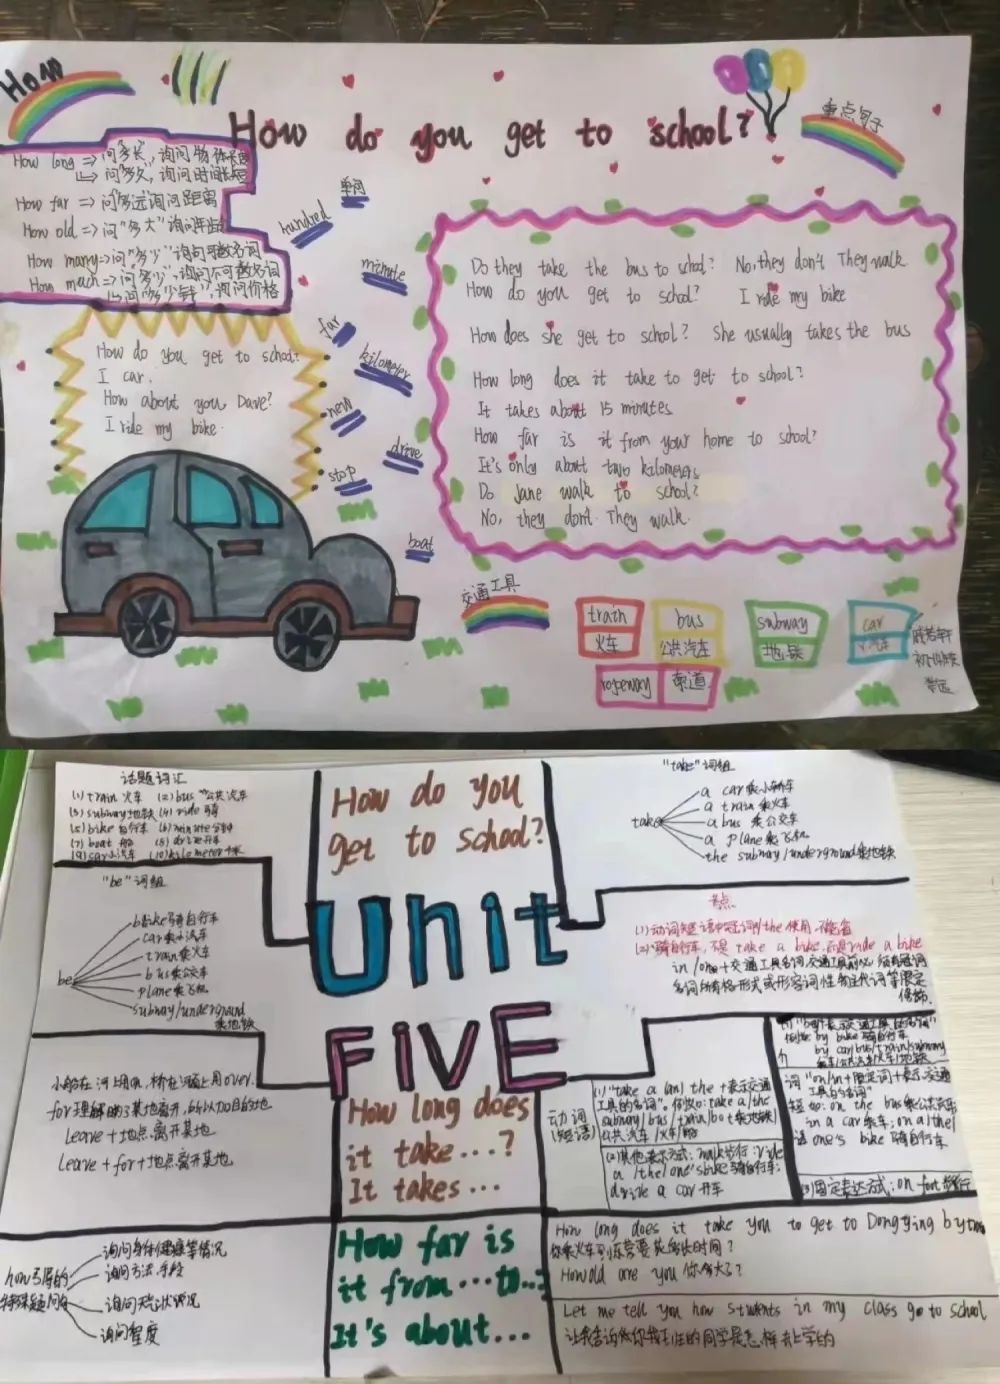 How
How do you get to school?
重点句子
How long => 问"多长", 询问物体长度
↳ 问"多久", 询问时间长短
How far => 问"多远"询问距离
How old => 问"多大"询问年龄
How many => 问"多少"询问可数名词
How much => 问"多少", 询问不可数名词
↳ 问"多少钱", 询问价格
单词
hundred
minute
far
kilometer
new
drive
stop
boat
How do you get to school?
I car.
How about you Dave?
I ride my bike.
Do they take the bus to school? No, they don't They walk
How do you get to school? I ride my bike
How does she get to school? She usually takes the bus
How long does it take to get to school?
It takes about 15 minutes
How far is it from your home to school?
It's only about two kilometers
Do Jane walk to school?
No, they don't. They walk.
交通工具
train 火车
bus 公共汽车
subway 地铁
car 汽车
ropeway 索道
话题词汇
(1) train 火车 (2) bus 公共汽车
(3) subway 地铁 (4) ride 骑
(5) bike 自行车 (6) minute 分钟
(7) boat 船 (8) drive 开车
(9) car 小汽车 (10) kilometer 千米
How do you
get to school?
"take"词组
take
a car 乘小轿车
a train 乘火车
a bus 乘公交车
a plane 乘飞机
the subway/underground 乘地铁
"be"词组
be
bike 骑自行车
car 乘小汽车
train 乘火车
bus 乘公交车
plane 乘飞机
subway/underground
乘地铁
Unit
FIVE
考点
(1) 动词短语中冠词/the 使用, 不能省
(2) 骑自行车, 不是 take a bike, 而是 ride a bike
in /on + 交通工具名词, 交通工具前必须有冠词
名词所有格形式或形容词性物主代词等限定
修饰.
小船在河上用on, 桥在河上用over.
for 理解的
leave + 地点, 离开某地
leave + for + 地点 离开某地
How long does
it take...?
It takes...
动词
(短语)
(1) "take a (an) the + 表示交通
工具的名词". 例如: take a/the
subway/bus/train/boat 乘地铁/
公共汽车/火车/船
(2) 其他表示方式: walk 步行; ride
a /the/one's bike 骑自行车;
drive a car 开车
例如 by bike 骑自行车
by car/bus/train/subway
介
词
短
语
"on/in + 限定词 + 表示交通
工具的名词"
如: on the bus 乘公共汽车
in a car 乘车; on a/the/
one's bike 骑自行车.
(3) 固定表达方式: on foot 步行
how引导的
特殊疑问句
询问身体健康等情况
询问方法、手段
询问天气状况
询问程度
How far is
it from...to...?
It's about...
How long does it take you to get to Dongying by train
你乘火车到东营要花多长时间?
How old are you 你多大了?
Let me tell you how students in my class go to school
让我告诉你我班的同学是怎样去上学的